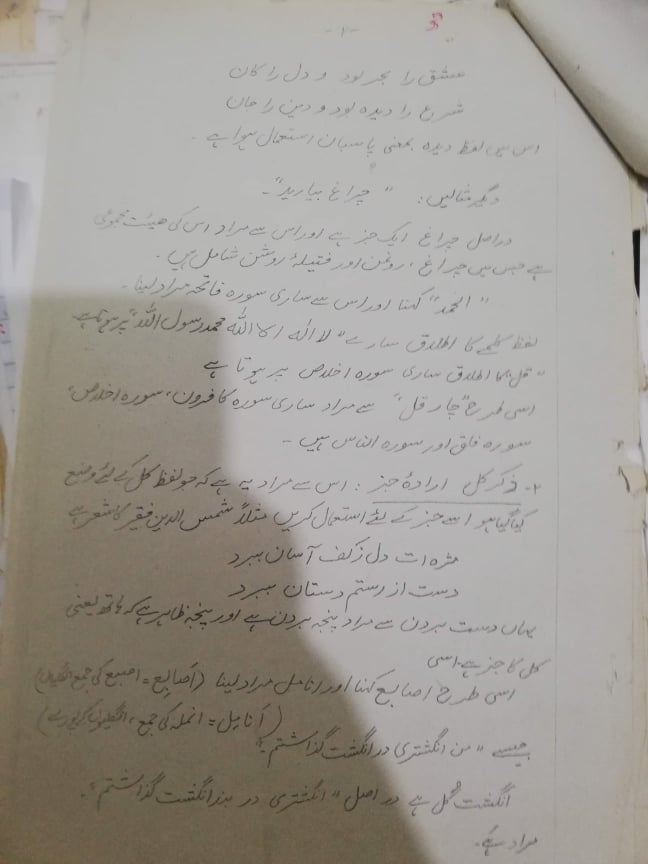 -۱-
عشق را بحر بود و دل را کان
شرع را دیدہ بود و دین را جان
اس میں لفظ دیدہ بمعنی پاسبان استعمال ہوا ہے۔
دیگر مثالیں: "چراغ بیارید"۔
دراصل چراغ ایک جز ہے اور اس سے مراد اس کی ھیئت مجموعی
ہے جس میں چراغ، روغن اور فتیلۂ روشن شامل ہیں۔
"الحمد" کہنا اور اس سے ساری سورہ فاتحہ مراد لینا۔
لفظ کلمے کا اطلاق سارے "لا الہ الا اللہ محمد رسول اللہ" پر ہوتا ہے۔
"قل" کا اطلاق ساری سورہ اخلاص پر ہوتا ہے
اسی طرح "چار قل" سے مراد ساری سورہ کافرون، سورہ اخلاص،
سورہ فلق اور سورہ الناس ہیں۔
۲۔ ذکر کل ارادۂ جز: اس سے مراد یہ ہے کہ جو لفظ کل کے لئے وضع
کیا گیا ہو اسے جز کے لئے استعمال کریں مثلاً شمس الدین فقیر کا شعر ہے
مژہ ات دل ز کف آسان ببرد
دست از رستم دستان ببرد
یہاں دست بردن سے مراد پنجہ بردن ہے اور پنجہ ظاہر ہے کہ ہاتھ یعنی
کل کا جز ہے۔ اسی
اسی طرح اصابع کہنا اور انامل مراد لینا (اَصابِع = اصبع کی جمع انگلیاں)
(اَنامِل = انملہ کی جمع، انگلیوں کی پورے)
جیسے "من انگشتری در انگشت گذاشتم"۔
انگشت کُل ہے در اصل "انگشتری در بند انگشت گذاشتم"۔
مراد ہے۔